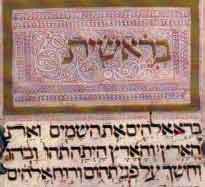 בראשית
ברא אלהים את השמים ואת
הארץ והארץ היתה תהו ובהו
וחשך על פני תהום ורוח אלהים